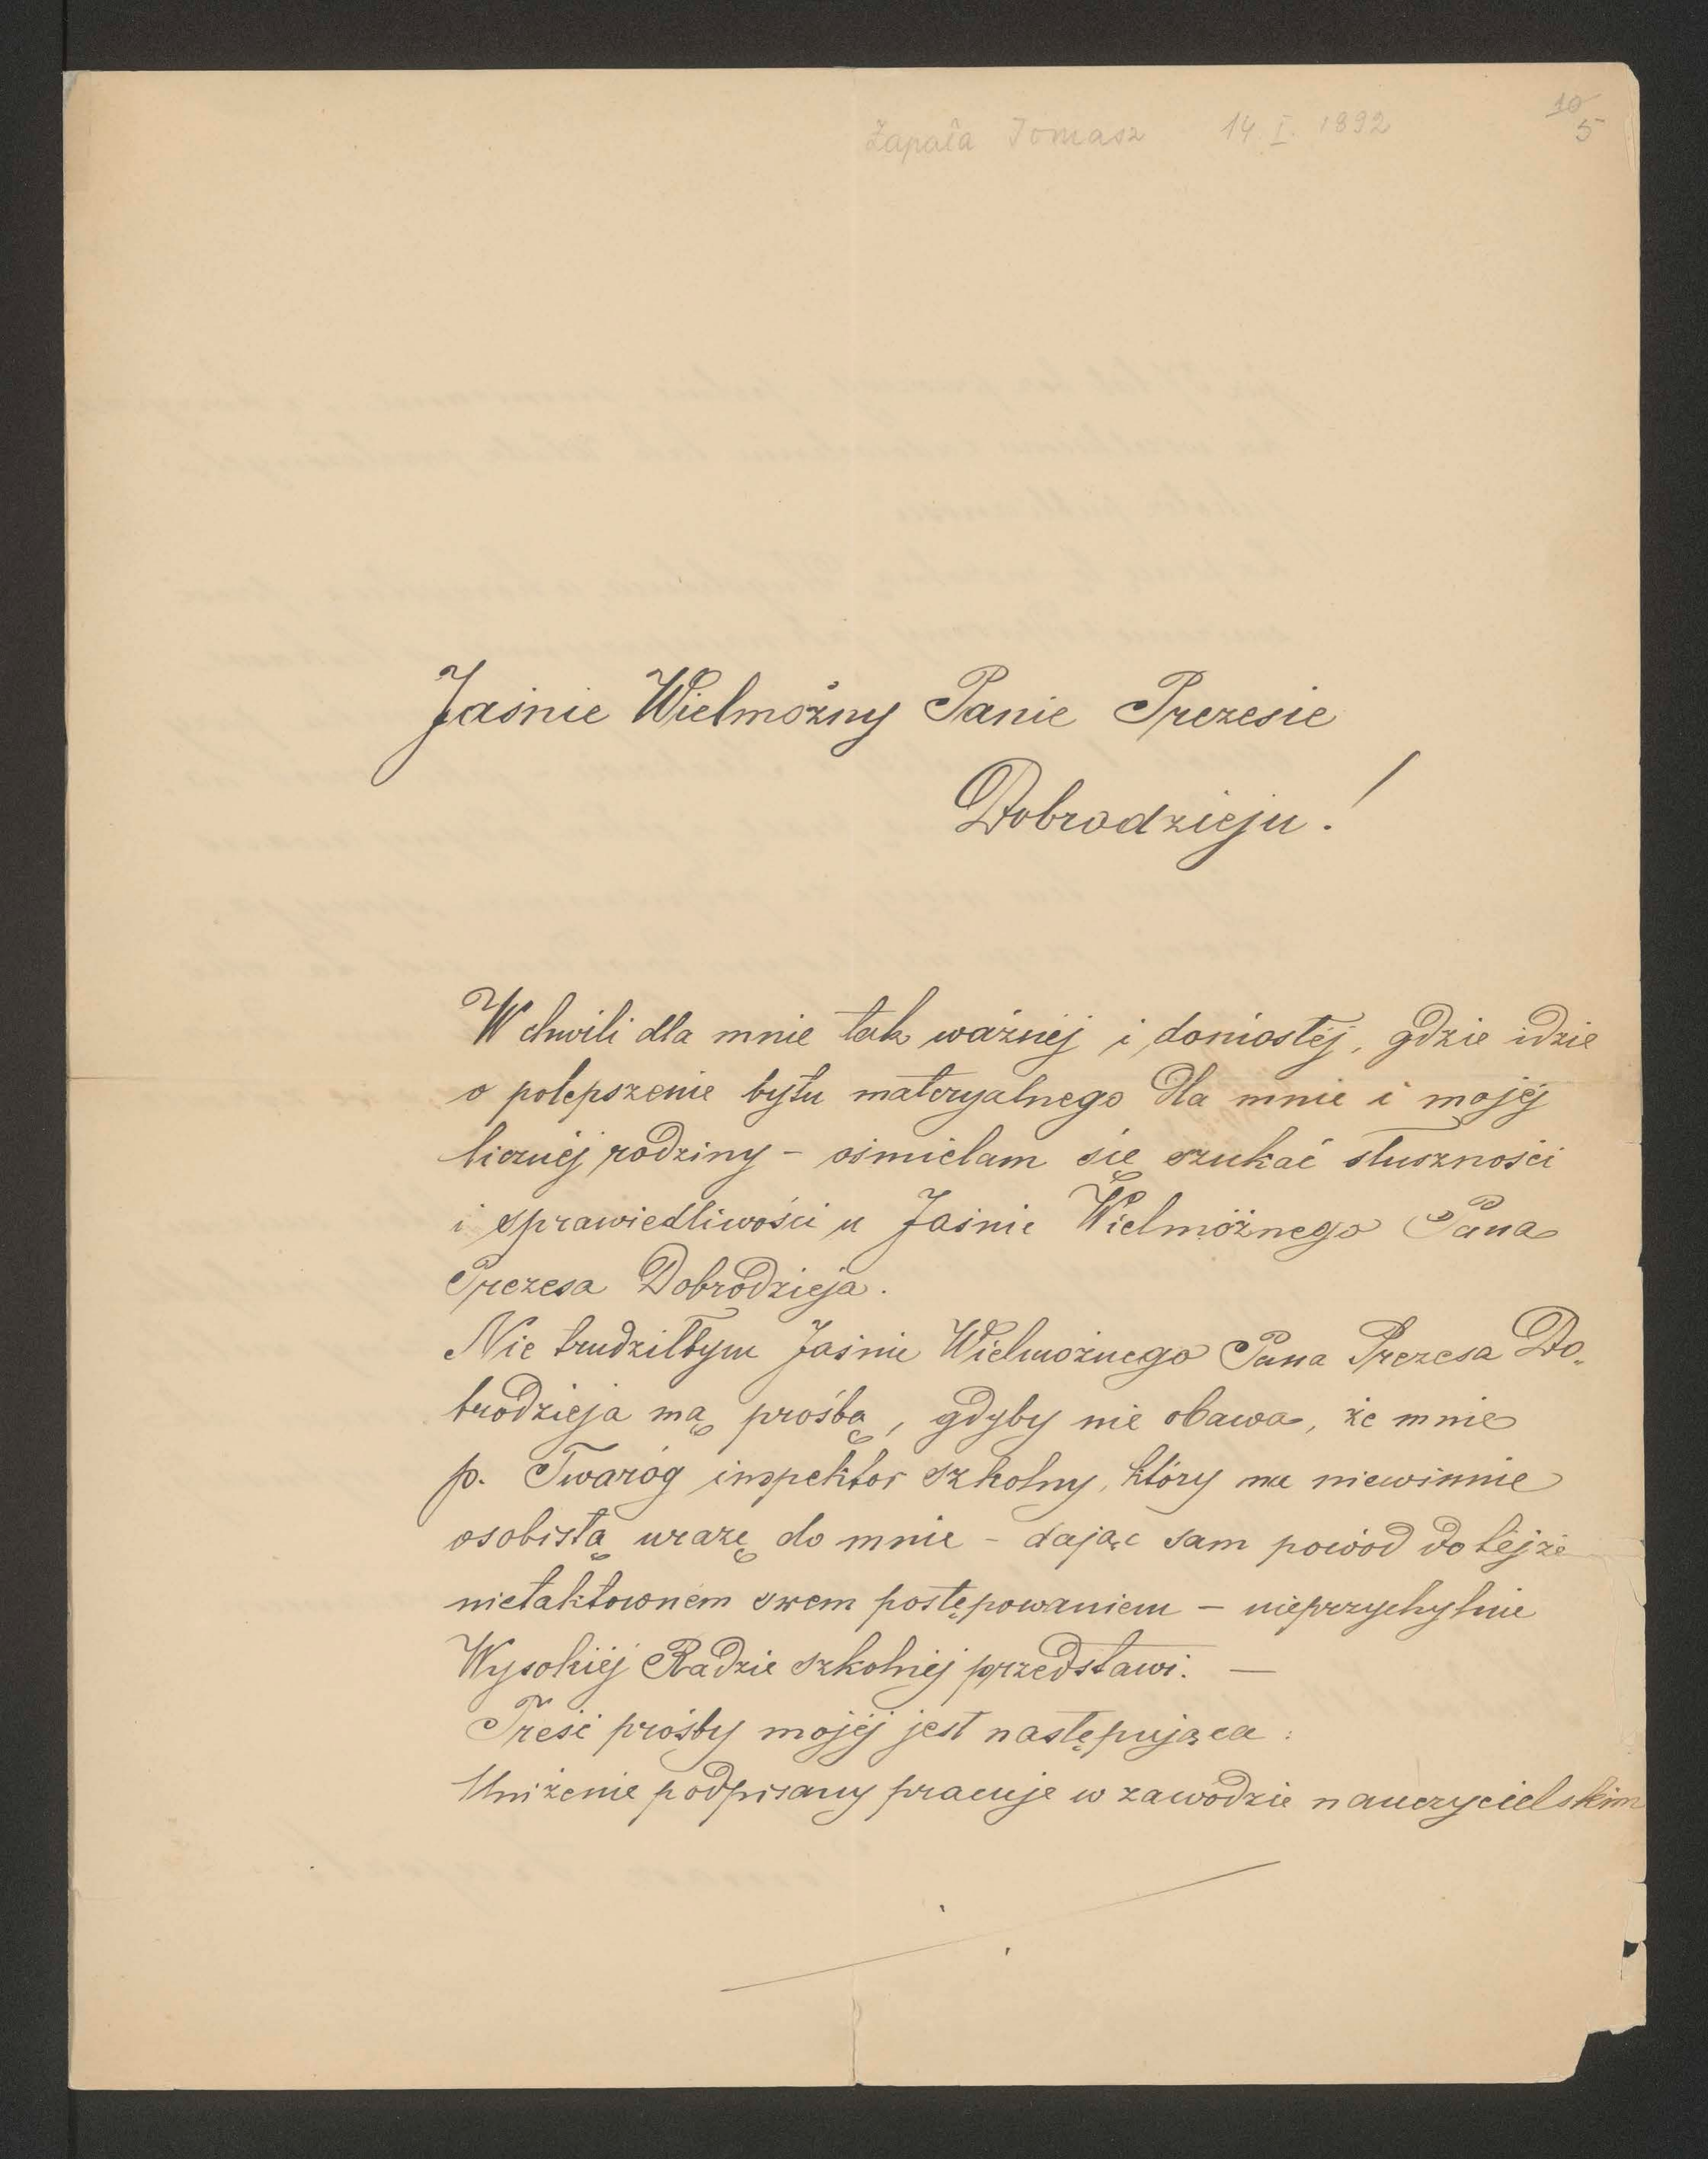 Zapała Tomasz 14. I. 1892
10
5
Jaśnie Wielmożny Panie Prezesie
Dobrodzieju!
W chwili dla mnie tak ważnéj i doniosłéj, gdzie idzie
o polepszenie bytu materyalnego dla mnie i mojéj
licznéj rodziny – ośmielam się szukać słuszności
i sprawiedliwości u Jaśnie Wielmożnego Pana
Prezesa Dobrodzieja.
Nie trudziłbym Jaśnie Wielmożnego Pana Prezesa Do„
brodzieja mą prośbą, gdyby nie obawa, że mnie
p. Twaróg inspektor szkolny, który ma niewinnie
osobistą urazę do mnie – dając sam powód do téjże
nietaktowném swem postępowaniem – nieprzychylnie
Wysokiéj Radzie szkolnéj przedstawi. —
Treść prośby mojéj jest następująca:
Uniżenie podpisany pracuje w zawodzie nauczycielskim